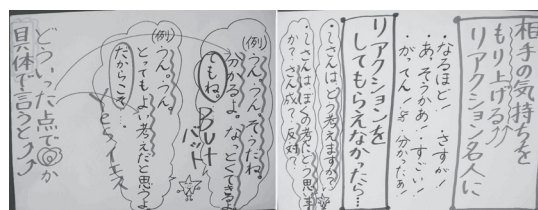 相手の気持ちを
もり上げる⤴⤴
リアクション名人に
・なるほど! ・さすが!
・あ、そうかあ! ・すごい!
・がってん ・分かったぁ!
リアクションを
してもらえなかったら…
・〜さんはどう考えますか?
・〜さんはぼくの考えにどう思い
ますか? さん成? 反対?
(例)
うん、うん、そうだね。
分かるよ。なっとくできるよ
でもね。But
バット
(例)
うん。うん。
とってもよい考えだと思うよ
だからこそ…。
Yes イエス
どういった点で◎か
具体で言うと⤴⤴